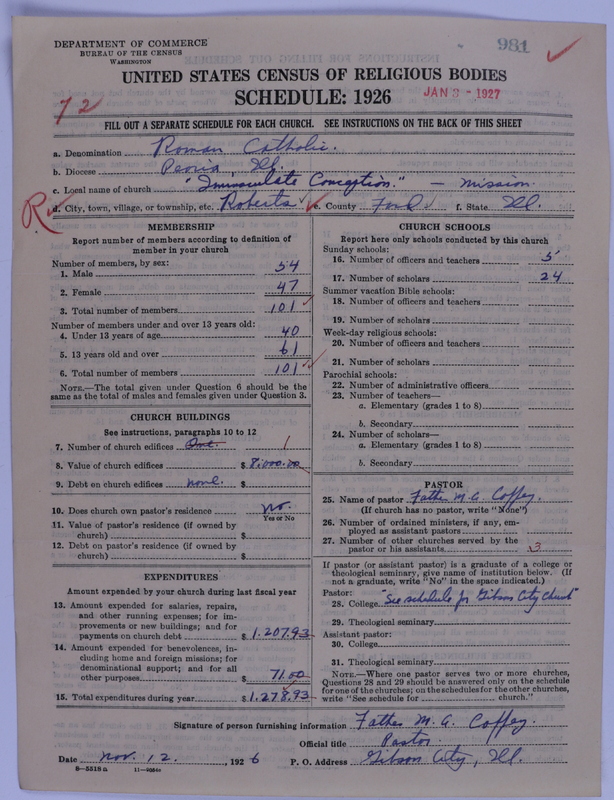 DEPARTMENT OF COMMERCE
BUREAU OF THE CENSUS
WASHINGTON
981
UNITED STATES CENSUS OF RELIGIOUS BODIES
SCHEDULE: 1926
JAN 3 - 1927
72
FILL OUT A SEPARATE SCHEDULE FOR EACH CHURCH. SEE INSTRUCTIONS ON THE BACK OF THIS SHEET
a. Denomination Roman Catholic.
b. Diocese Peoria, Ill.
c. Local name of church "Immaculate Conception." — Mission.
R
d. City, town, village, or township, etc. Roberts e. County Ford f. State Ill.
MEMBERSHIP
Report number of members according to definition of member in your church
Number of members, by sex:
1. Male 54
2. Female 47
3. Total number of members 101
Number of members under and over 13 years old:
4. Under 13 years of age 40
5. 13 years old and over 61
6. Total number of members 101
NOTE.—The total given under Question 6 should be the
same as the total of males and females given under Question 3.
CHURCH BUILDINGS
See instructions, paragraphs 10 to 12
7. Number of church edifices One. 1
8. Value of church edifices $ 8,000.00
9. Debt on church edifices none. $
10. Does church own pastor's residence no.
Yes or No
11. Value of pastor's residence (if owned by
church) $
12. Debt on pastor's residence (if owned by
church) $
EXPENDITURES
Amount expended by your church during last fiscal year
13. Amount expended for salaries, repairs,
and other running expenses; for im-
provements or new buildings; and for
payments on church debt $ 1,207.93
14. Amount expended for benevolences, in-
cluding home and foreign missions; for
denominational support; and for all
other purposes $ 71.00
15. Total expenditures during year $ 1,278.93
CHURCH SCHOOLS
Report here only schools conducted by this church
Sunday schools:
16. Number of officers and teachers 5
17. Number of scholars 24
Summer vacation Bible schools:
18. Number of officers and teachers
19. Number of scholars
Week-day religious schools:
20. Number of officers and teachers
21. Number of scholars
Parochial schools:
22. Number of administrative officers
23. Number of teachers—
a. Elementary (grades 1 to 8)
b. Secondary
24. Number of scholars—
a. Elementary (grades 1 to 8)
b. Secondary
PASTOR
25. Name of pastor Father M. A. Coffey.
(If church has no pastor, write "None")
26. Number of ordained ministers, if any, em-
ployed as assistant pastors
27. Number of other churches served by the
pastor or his assistants 3
If pastor (or assistant pastor) is a graduate of a college or
theological seminary, give name of institution below. (If
not a graduate, write "No" in the space indicated.)
Pastor:
28. College "See schedule for Gibson City Church"
29. Theological seminary
Assistant pastor:
30. College
31. Theological seminary
NOTE.—Where one pastor serves two or more churches,
Questions 28 and 29 should be answered only on the schedule
for one of the churches; on the schedules for the other churches,
write "See schedule for church."
Signature of person furnishing information Father M. A. Coffey.
Official title Pastor.
Date Nov. 12, 1926 P. O. Address Gibson City, Ill.
8—5518a